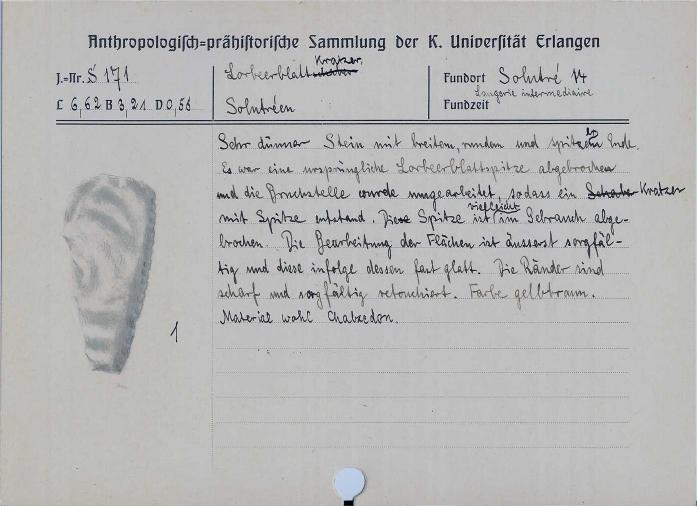 Anthropologisch=prähistorische Sammlung der K. Universität Erlangen
J.=Nr. S 171
L 6,62 B 3,21 D 0,56
Kratzer.
Lorbeerblatt
Solutréen
Fundort Solutré 14
Laugerie intermediaire
Fundzeit
Sehr dünner Stein mit breitem, runden und spitzem Ende.
Es war eine ursprüngliche Lorbeerblattspitze abgebrochen
und die Bruchstelle wurde umgearbeitet, sodass ein Schaber Kratzer
mit Spitze entstand. Diese Spitze ist vielleicht im Gebrauch abge-
brochen. Die Bearbeitung der Flächen ist äusserst sorgfäl-
tig und diese infolge dessen fast glatt. Die Ränder sind
scharf und sorgfältig retouchiert. Farbe gelbbraun.
Material wohl Chalzedon.
1